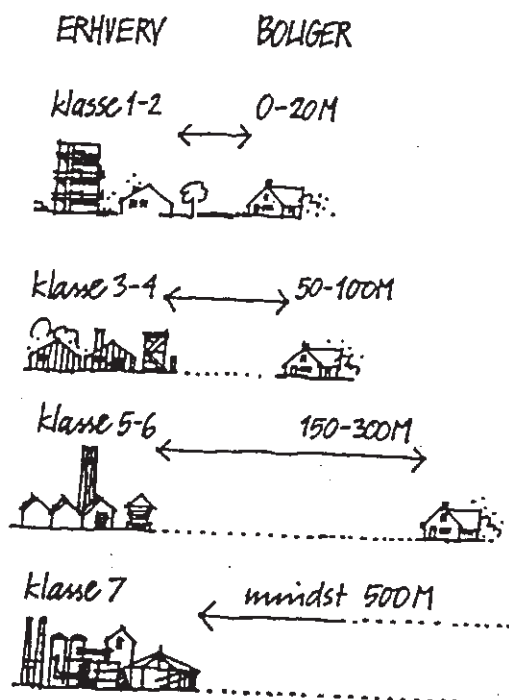 ERHVERV BOLIGER
klasse 1-2 0-20M
klasse 3-4 50-100M
klasse 5-6 150-300M
klasse 7 mindst 500M